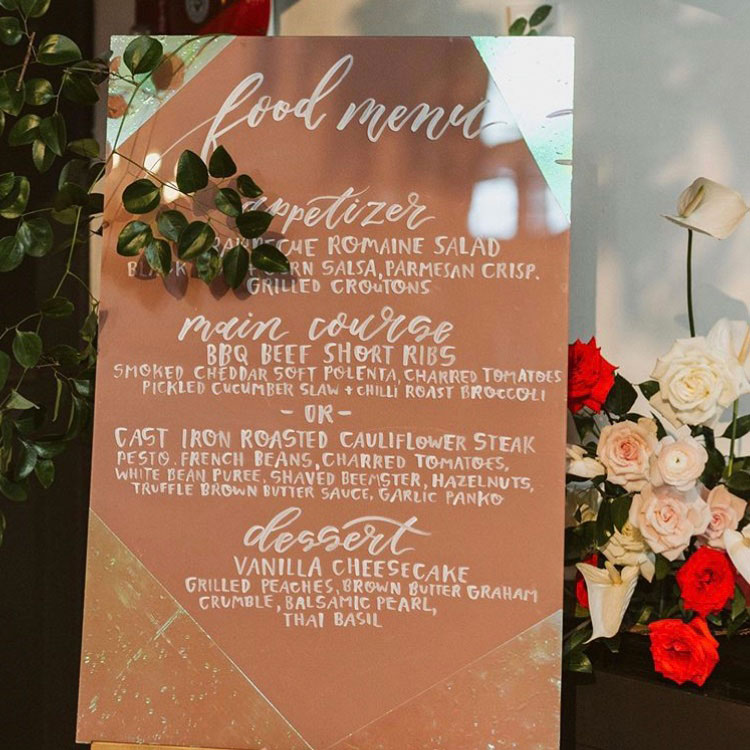 food menu
appetizer
BARBECUE ROMAINE SALAD
BLACK CORN SALSA, PARMESAN CRISP.
GRILLED CROUTONS
main course
BBQ BEEF SHORT RIBS
SMOKED CHEDDAR SOFT POLENTA, CHARRED TOMATOES
PICKLED CUCUMBER SLAW + CHILLI ROAST BROCCOLI
- OR -
CAST IRON ROASTED CAULIFLOWER STEAK
PESTO. FRENCH BEANS, CHARRED TOMATOES,
WHITE BEAN PUREE, SHAVED BEEMSTER, HAZELNUTS,
TRUFFLE BROWN BUTTER SAUCE, GARLIC PANKO
dessert
VANILLA CHEESECAKE
GRILLED PEACHES, BROWN BUTTER GRAHAM
CRUMBLE, BALSAMIC PEARL,
THAI BASIL